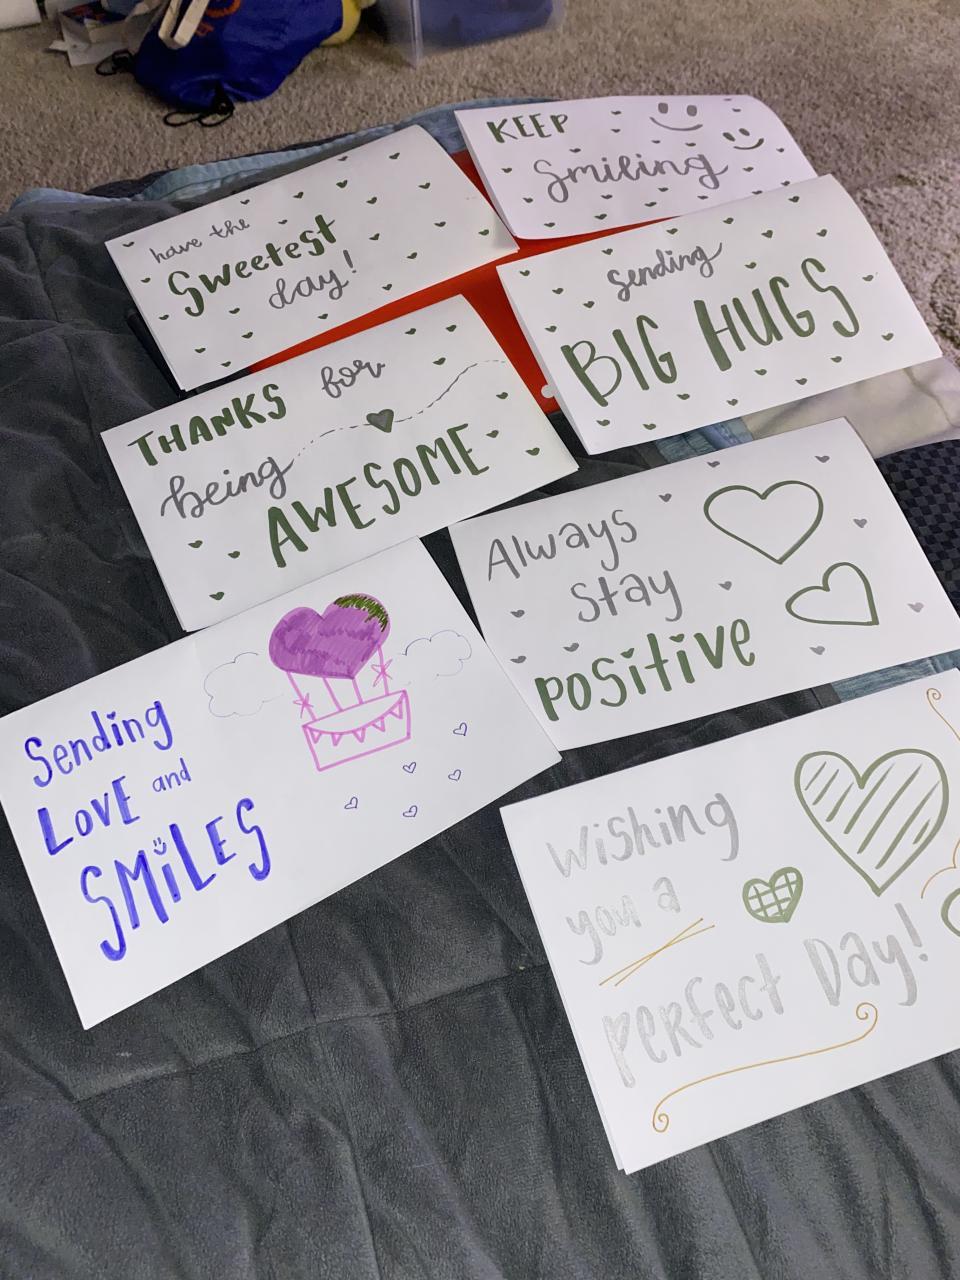 KEEP
Smiling
have the
Sweetest
day!
sending
BIG HUGS
THANKS for
being
AWESOME
Always
stay
positive
Sending
LOVE and
SMiLES
Wishing
you a
PERFECT DAY!